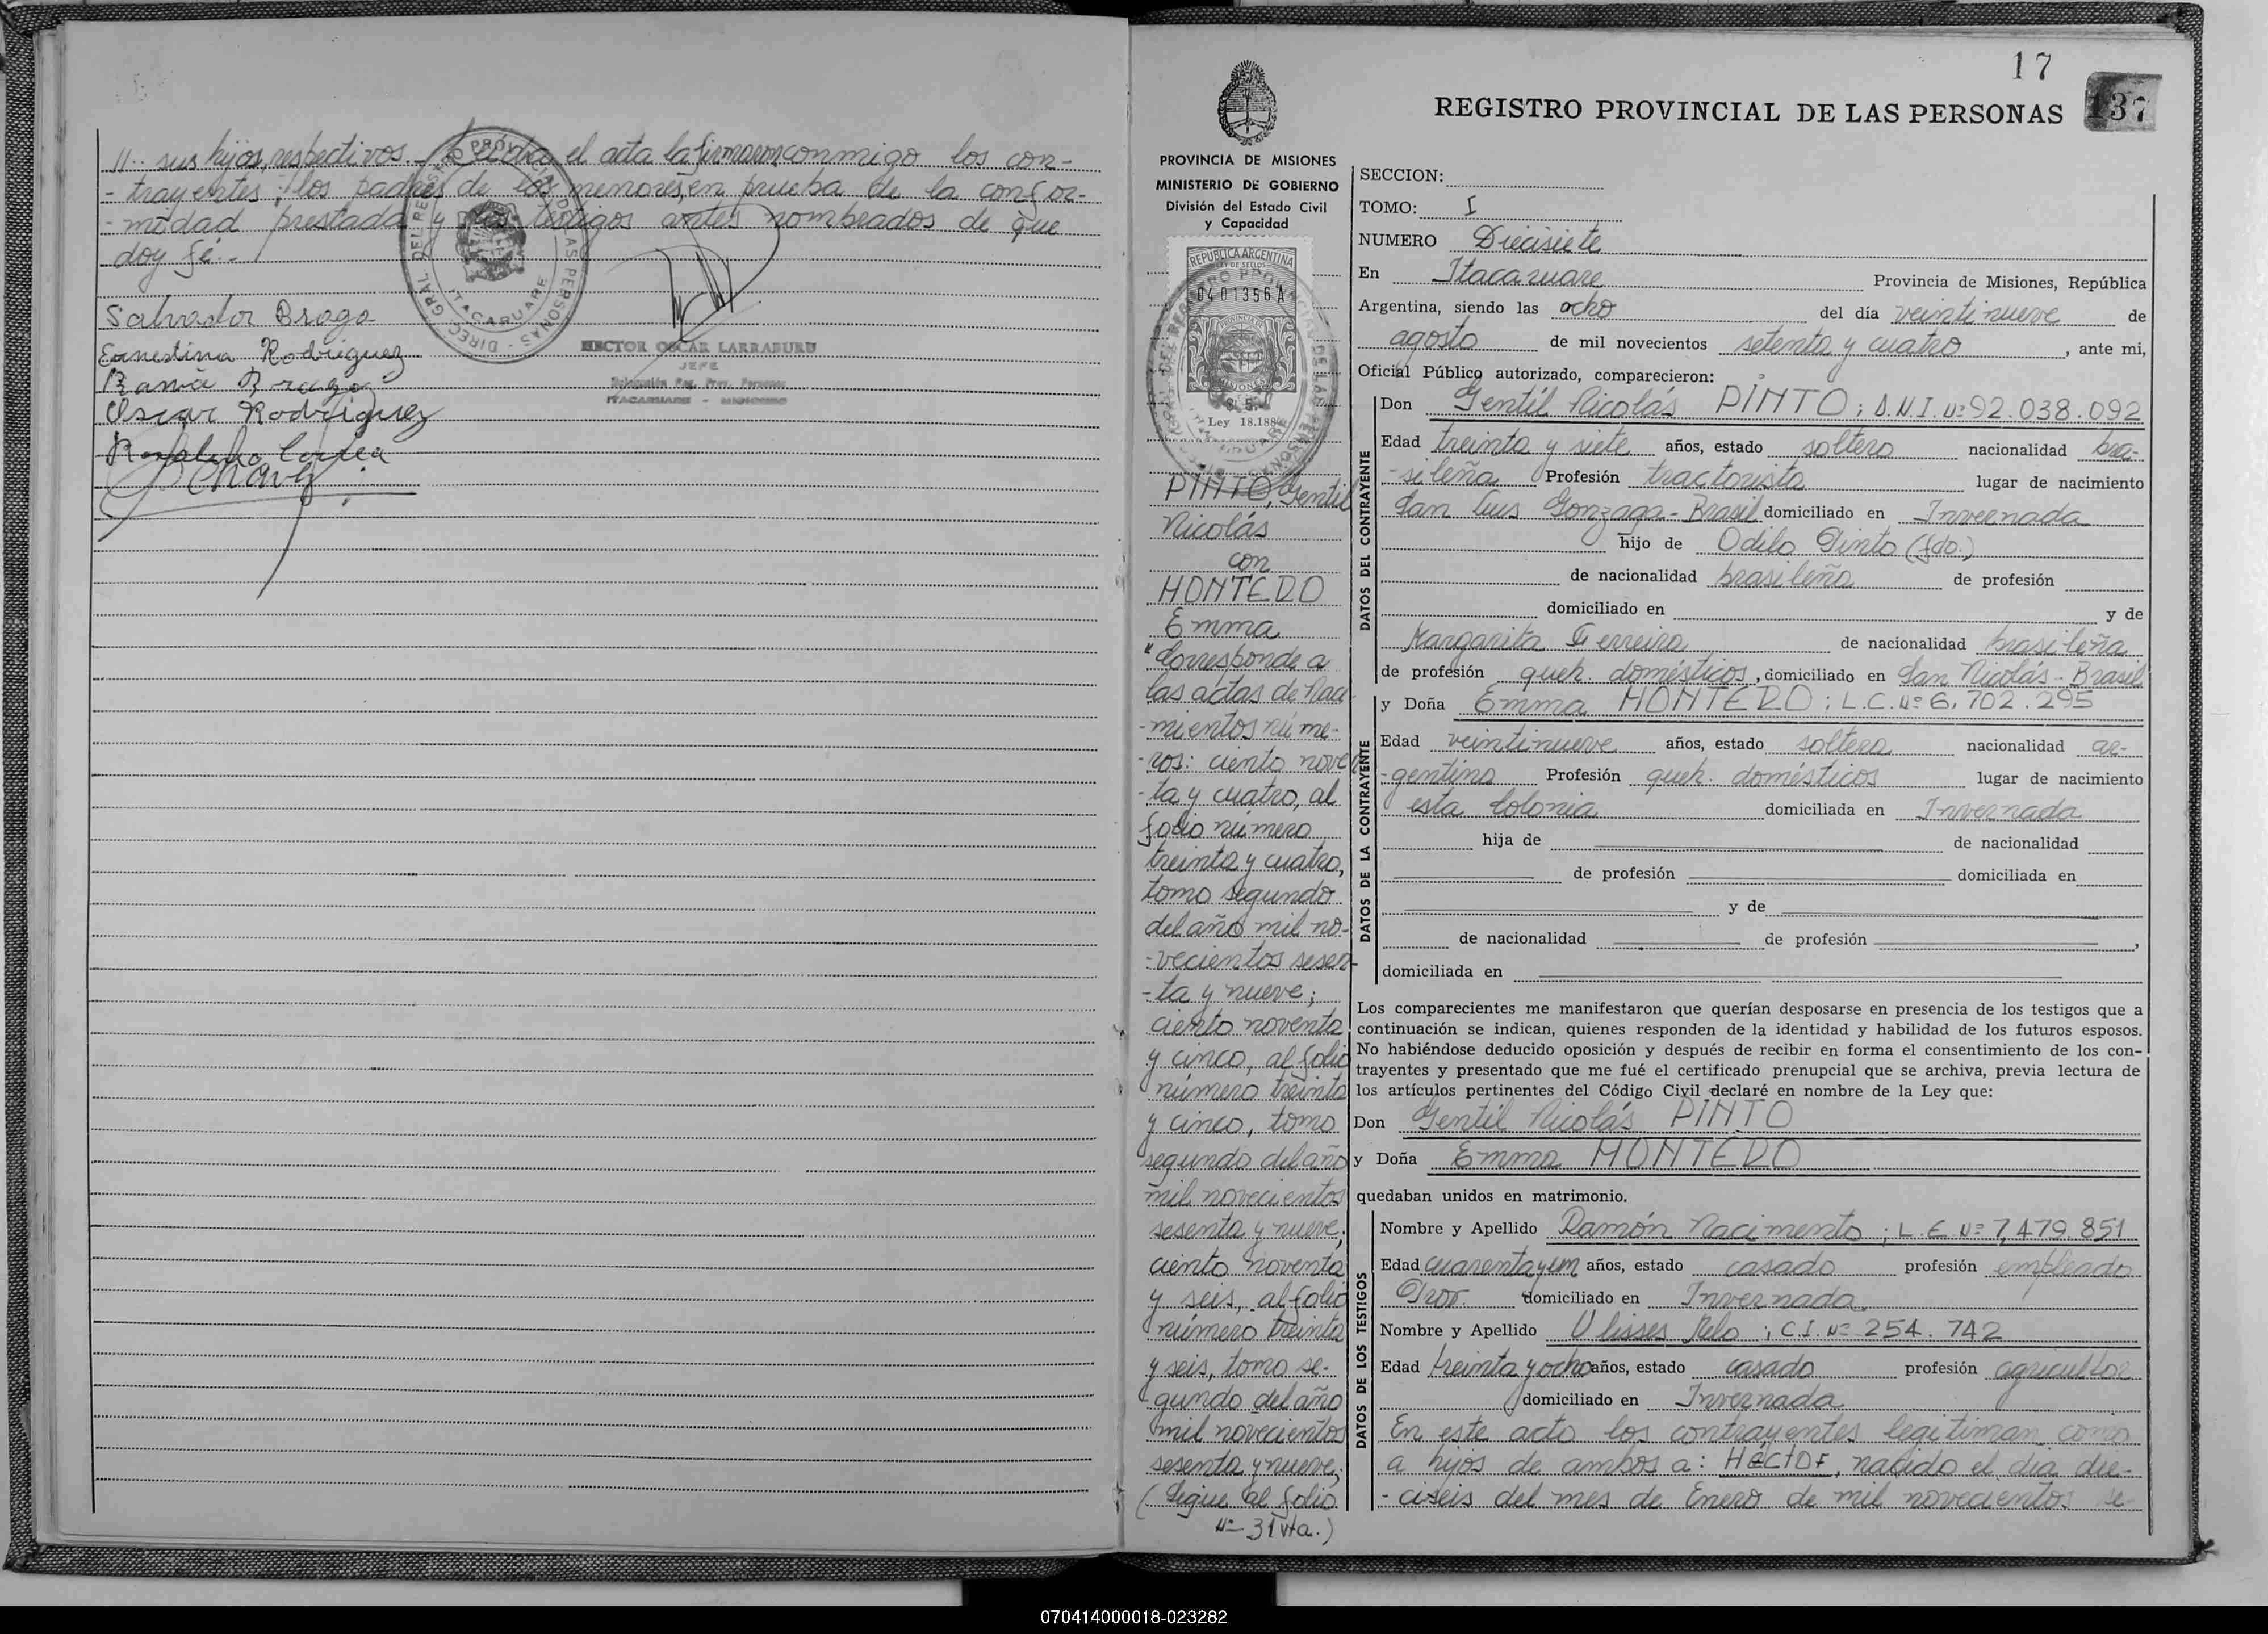 //.. sus hijos, respectivos.- Leída el acta la firmaron conmigo los con-
- trayentes; los padres de los menores, en prueba de la confor-
- midad prestada y los testigos antes nombrados de que
doy fé.-
DIREC. GRAL. DEL REGISTRO PROVINCIAL DE LAS PERSONAS
ITACARUARE
Salvador Braga
Ernestina Rodriguez
HECTOR OSCAR LARRABURU
JEFE
Delegación Reg. Prov. Personas
ITACARUARE - MISIONES
Braga
Oscar Rodriguez
Correa
17
137
REGISTRO PROVINCIAL DE LAS PERSONAS
PROVINCIA DE MISIONES
MINISTERIO DE GOBIERNO
División del Estado Civil
y Capacidad
REPUBLICA ARGENTINA
LEY DE SELLOS
0401356 A
Ley 18.188
PINTO, Gentil
Nicolás
con
MONTERO
Emma
"Corresponde a
las actas de Naci
- mientos núme-
- ros: ciento noven
- ta y cuatro, al
folio número
treinta y cuatro,
tomo segundo
del año mil no-
- vecientos sesen-
- ta y nueve;
ciento noventa
y cinco, al folio
número treinta
y cinco, tomo
segundo del año
mil novecientos
sesenta y nueve;
ciento noventa
y seis, al folio
número treinta
y seis, tomo se-
gundo del año
mil novecientos
sesenta y nueve;
(Sigue al folio
Nº 31 vta.)
SECCION:
TOMO: I
NUMERO Diecisiete
En Itacaruare Provincia de Misiones, República
Argentina, siendo las ocho del día veintinueve de
agosto de mil novecientos setenta y cuatro, ante mi,
Oficial Público autorizado, comparecieron:
DATOS DEL CONTRAYENTE
Don Gentil Nicolás PINTO; D.N.I. Nº 92.038.092
Edad treinta y siete años, estado soltero nacionalidad bra-
- sileña Profesión tractorista lugar de nacimiento
San Luis Gonzaga - Brasil domiciliado en Invernada
hijo de Odilo Pinto (fdo.)
de nacionalidad brasileña de profesión
domiciliado en y de
Margarita Ferreira de nacionalidad brasileña
de profesión queh. domésticos, domiciliado en San Nicolás - Brasil
DATOS DE LA CONTRAYENTE
y Doña Emma MONTERO; L.C. Nº 6.702.295
Edad veintinueve años, estado soltera nacionalidad ar-
- gentina Profesión queh. domésticos lugar de nacimiento
esta Colonia domiciliada en Invernada
hija de de nacionalidad
de profesión domiciliada en
y de
de nacionalidad de profesión ,
domiciliada en
Los comparecientes me manifestaron que querían desposarse en presencia de los testigos que a
continuación se indican, quienes responden de la identidad y habilidad de los futuros esposos.
No habiéndose deducido oposición y después de recibir en forma el consentimiento de los con-
trayentes y presentado que me fué el certificado prenupcial que se archiva, previa lectura de
los artículos pertinentes del Código Civil declaré en nombre de la Ley que:
Don Gentil Nicolás PINTO
y Doña Emma MONTERO
quedaban unidos en matrimonio.
DATOS DE LOS TESTIGOS
Nombre y Apellido Ramón Nacimento; L.E. Nº 7.479.851
Edad cuarenta y un años, estado casado profesión empleado
Prov. domiciliado en Invernada
Nombre y Apellido Ulisses Melo; C.I. Nº 254.742
Edad treinta y ocho años, estado casado profesión agricultor
domiciliado en Invernada
En este acto los contrayentes legitiman como
a hijos de ambos a: Héctor, nacido el día die-
- ciséis del mes de Enero de mil novecientos se
070414000018-023282